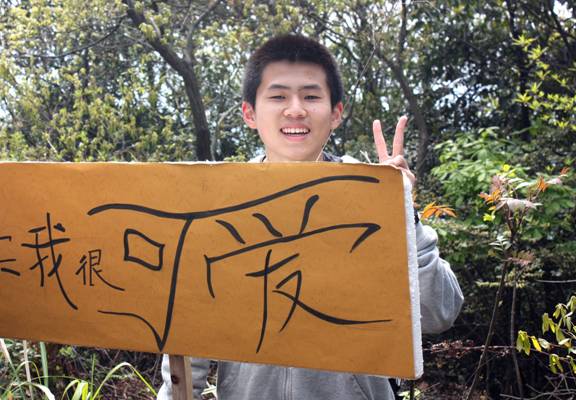 我很可爱